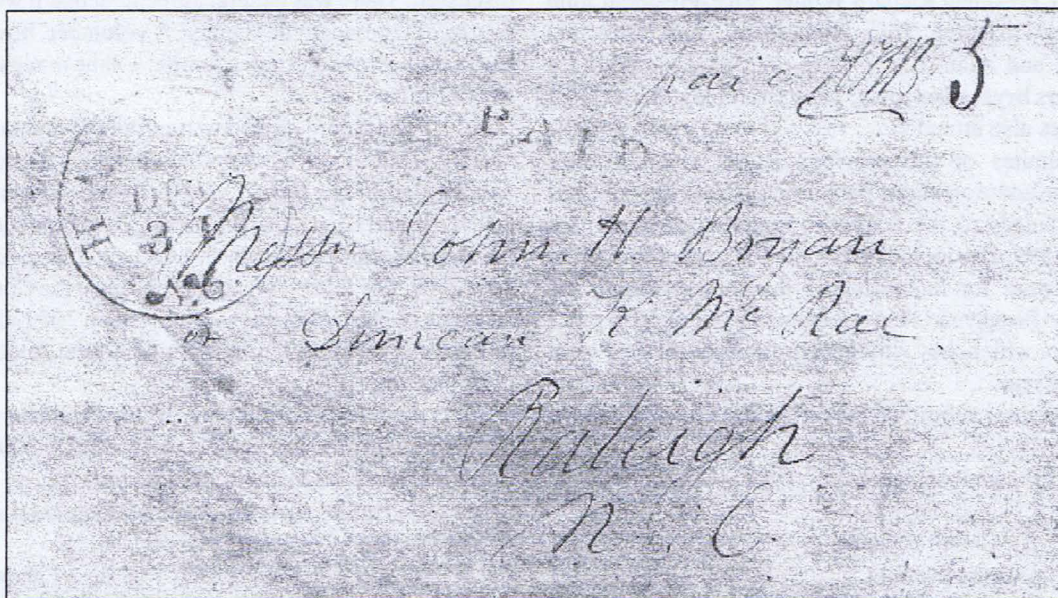 paid 5
PAID
DEC
31
N.C.
H
Messrs John. H. Bryan
or Duncan K McRae
Raleigh
N. C.